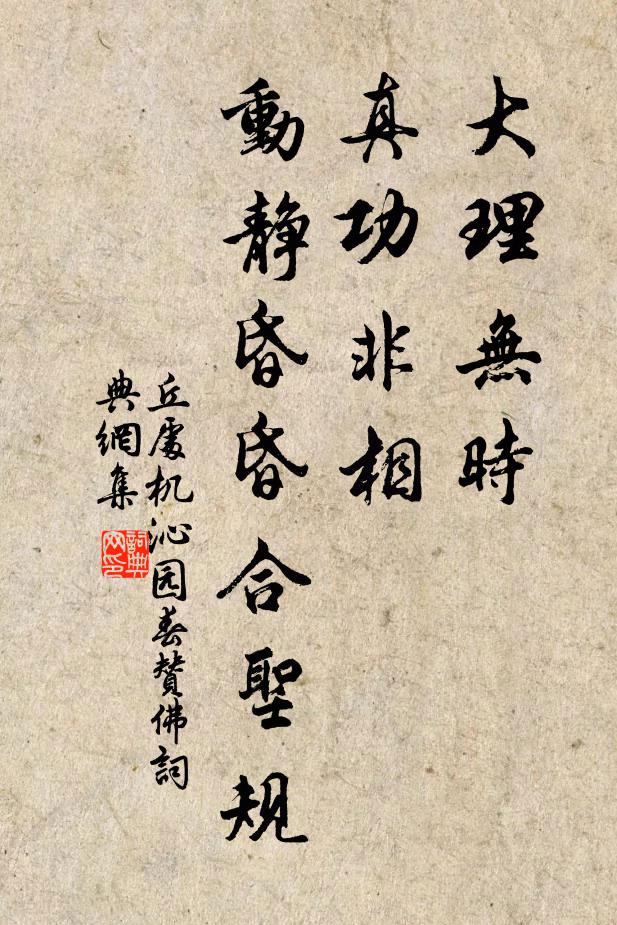 大理無時
真功非相
動静昏昏合聖規
丘處机沁园春赞佛詞
典網集
詞典网印